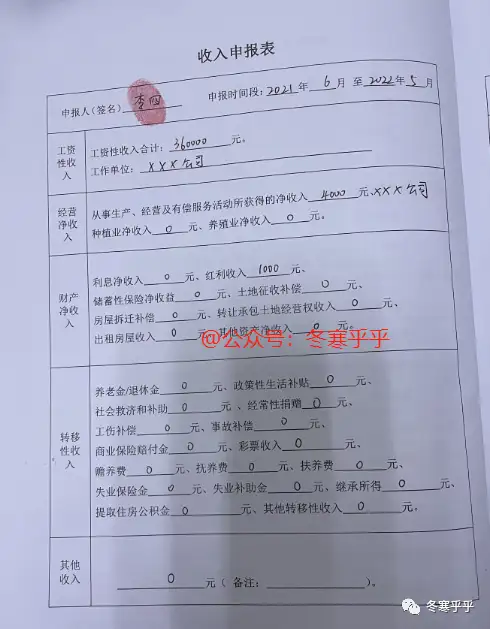 收入申报表
申报人(签名) 李四 申报时间段:2021年 6月 至 2022年 5月
工资性收入
工资性收入合计: 360000 元。
工作单位: XXX公司
经营净收入
从事生产、经营及有偿服务活动所获得的净收入 4000 元、XXX公司
种植业净收入 0 元、养殖业净收入 0 元。
财产净收入
利息净收入 0 元、红利收入 1000 元、
储蓄性保险净收益 0 元、土地征收补偿 0 元、
房屋拆迁补偿 0 元、转让承包土地经营权收入 0 元、
出租房屋收入 0 元、其他资产净收入 0 元。
@公众号:冬寒乎乎
转移性收入
养老金/退休金 0 元、政策性生活补贴 0 元、
社会救济和补助 0 元、经常性捐赠 0 元、
工伤补偿 0 元、事故补偿 0 元、
商业保险赔付金 0 元、彩票收入 0 元、
赡养费 0 元、抚养费 0 元、扶养费 0 元、
失业保险金 0 元、失业补助金 0 元、继承所得 0 元、
提取住房公积金 0 元、其他转移性收入 0 元。
其他收入
0 元(备注: )。
冬寒乎乎